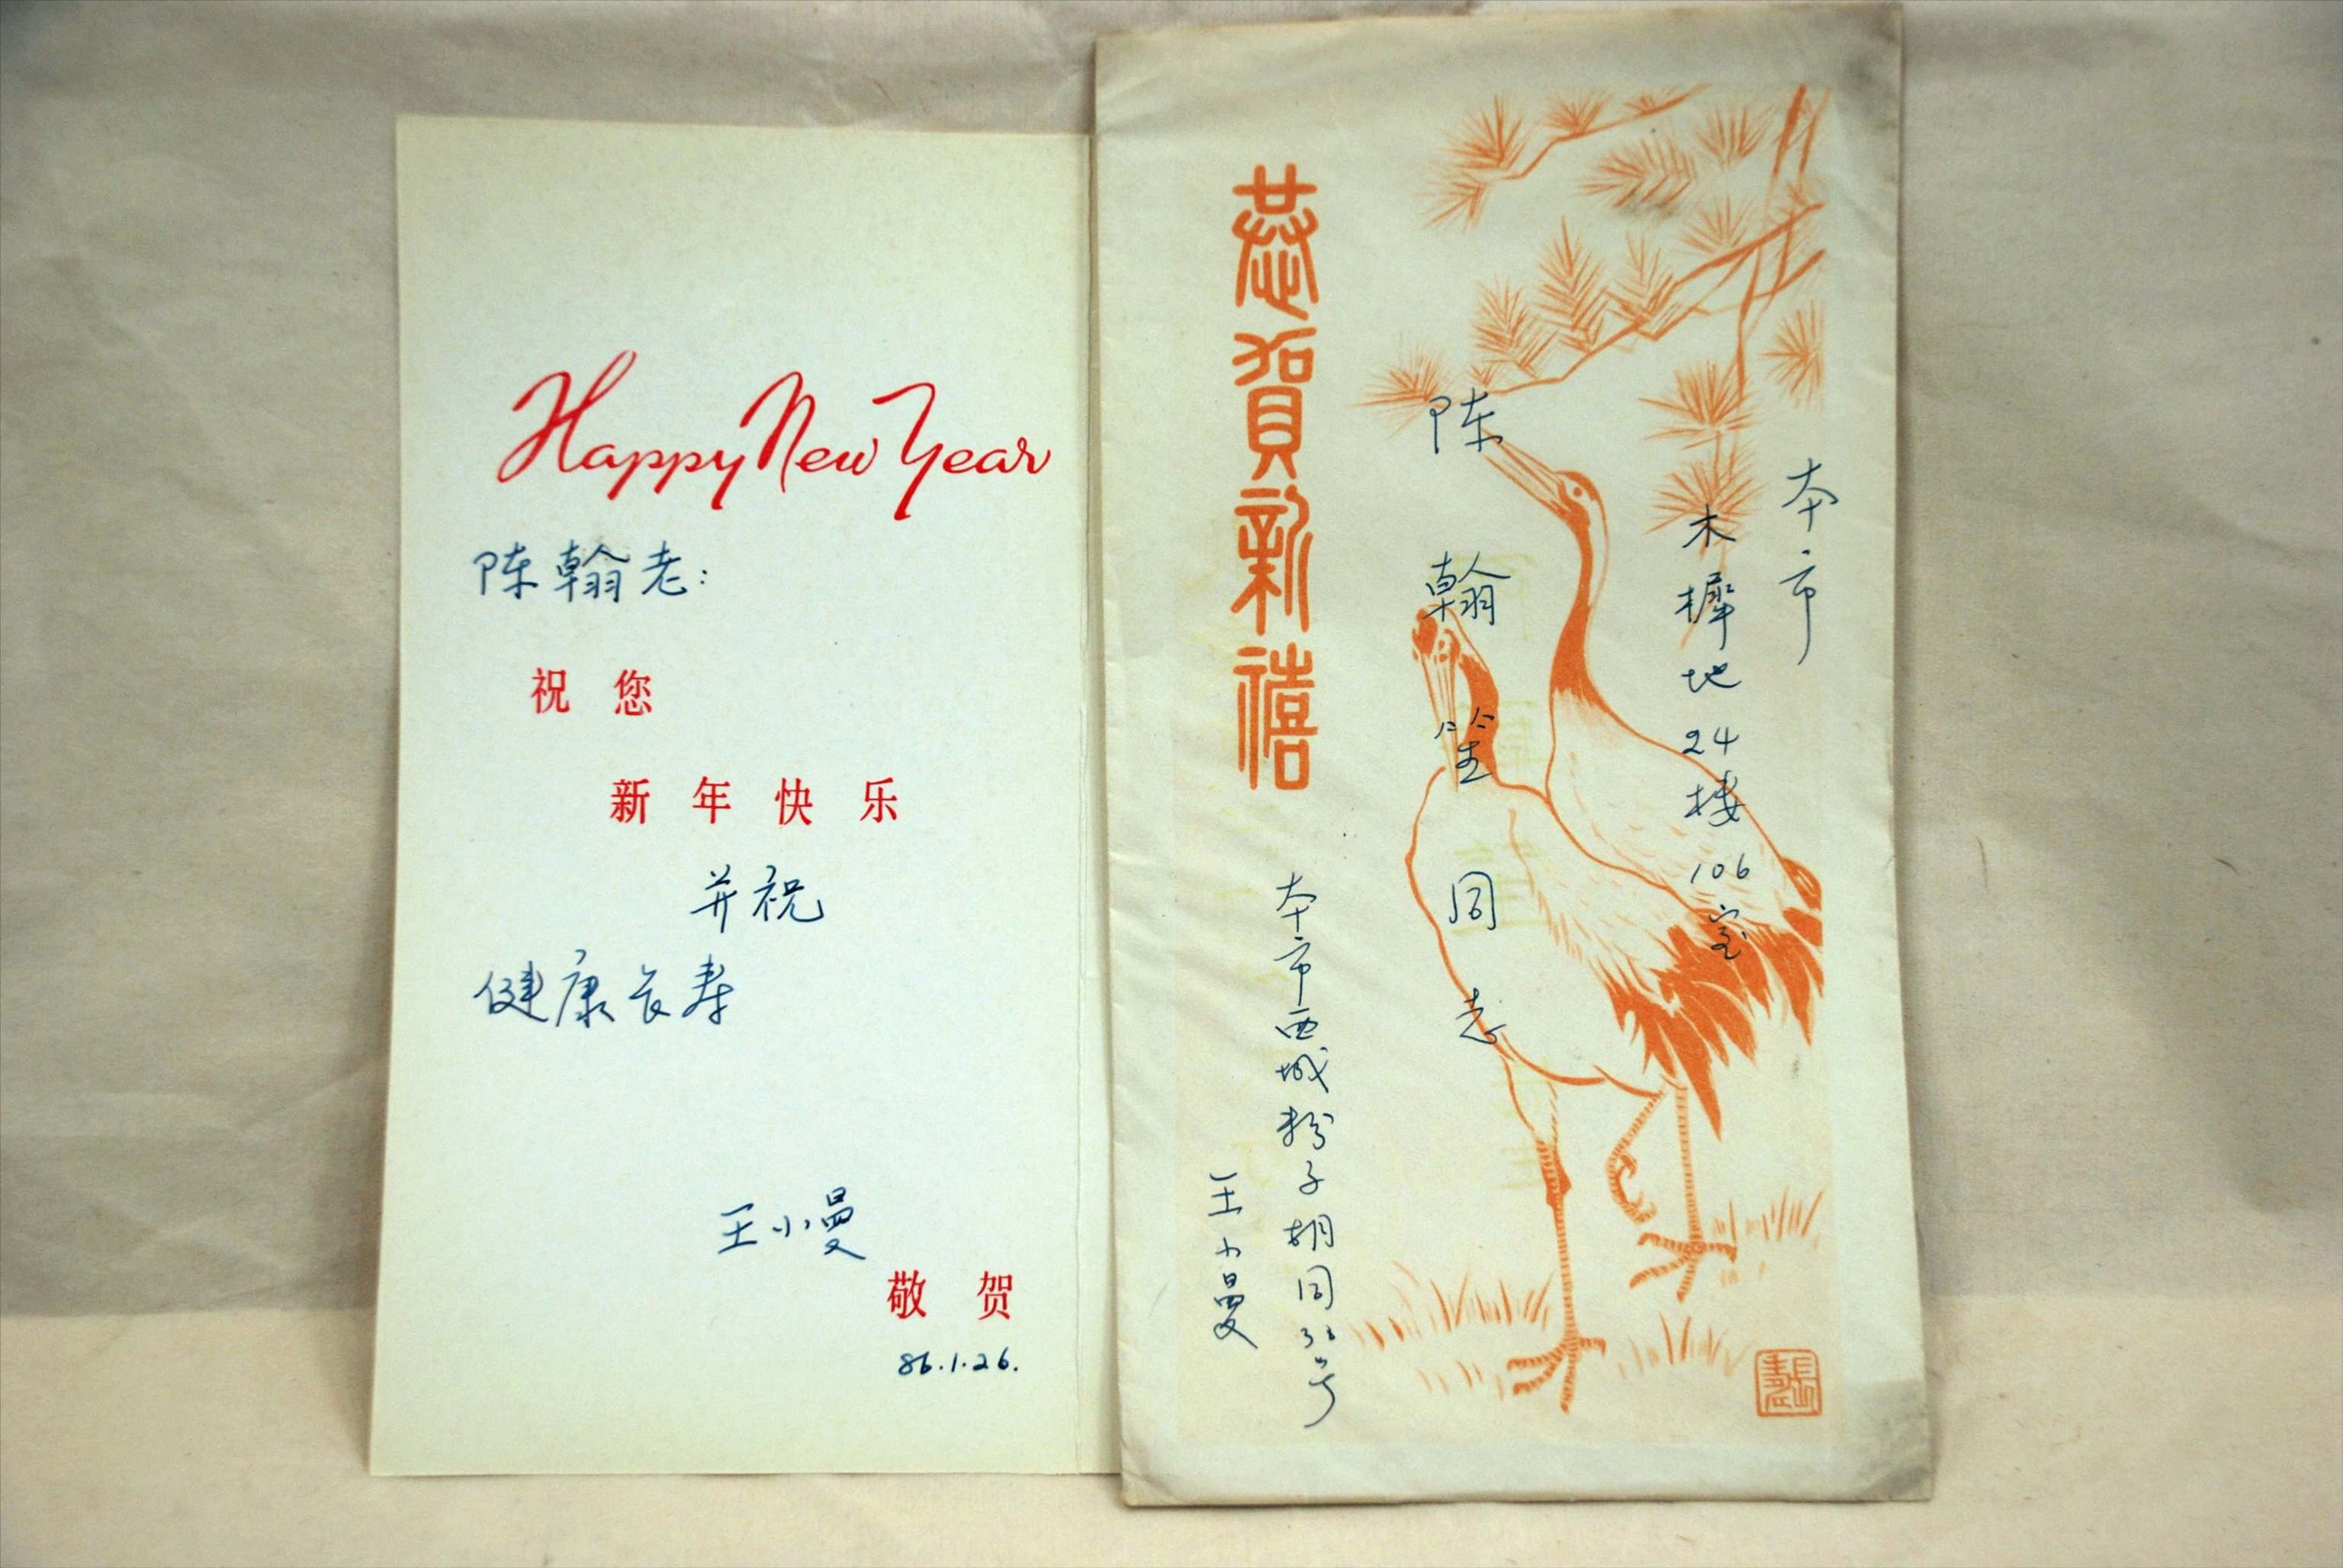 Happy New Year
陈翰老:
祝您
新年快乐
并祝
健康长寿
王小曼
敬贺
86.1.26.
恭賀新禧
本市
木樨地24楼106室
陈翰笙同志
本市西城粉子胡同号
王小曼